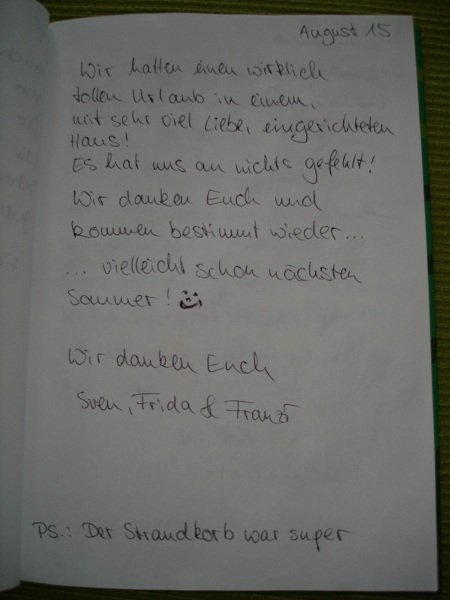 August 15
Wir hatten einen wirklich
tollen Urlaub in einem,
mit sehr viel Liebe, eingerichteten
Haus!
Es hat uns an nichts gefehlt!
Wir danken Euch und
kommen bestimmt wieder...
... vielleicht schon nächsten
Sommer!
Wir danken Euch
Sven, Frida & Franzi
PS.: Der Strandkorb war super